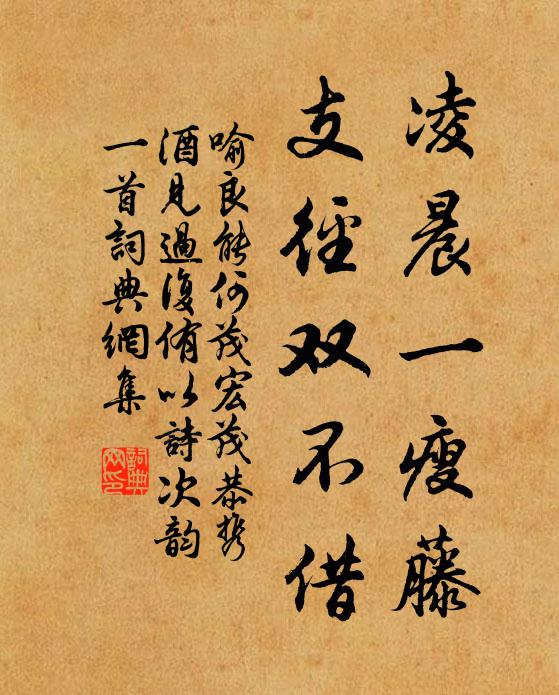 凌晨一瘦藤
支徑双不借
喻良能何茂宏茂恭攜
酒見過復侑以詩次韵
一首詞典網集